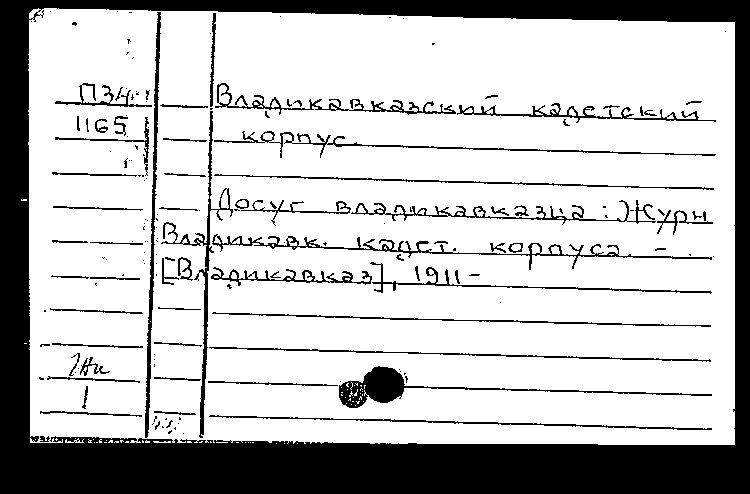 Владикавказский кадетский
1165 корпус.
Досуг владикавказца : Журн
Владикавк. кадет. корпуса. -
[Владикавказ], 1911 -
1